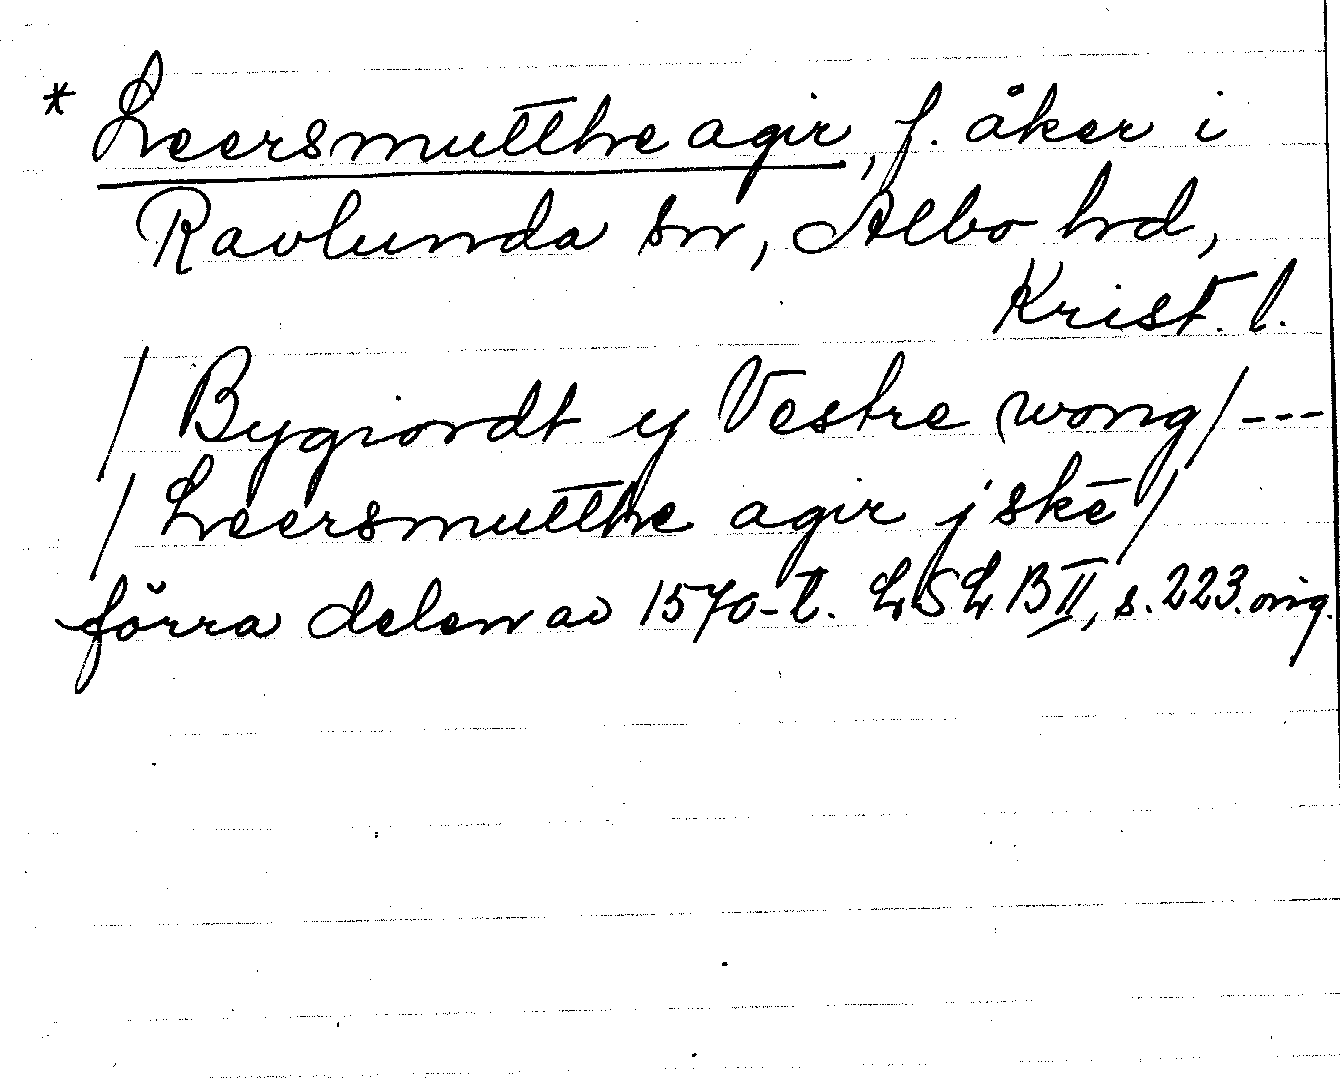 * Leersmutthe agir, f. åker i
Ravlunda sn, Albo hd,
Krist. l.
/ Bygiordt y Vestre wong / ---
/ Leersmutthe agir j skē /
förra delen av 1570-t. LSLB II, s. 223. orig.